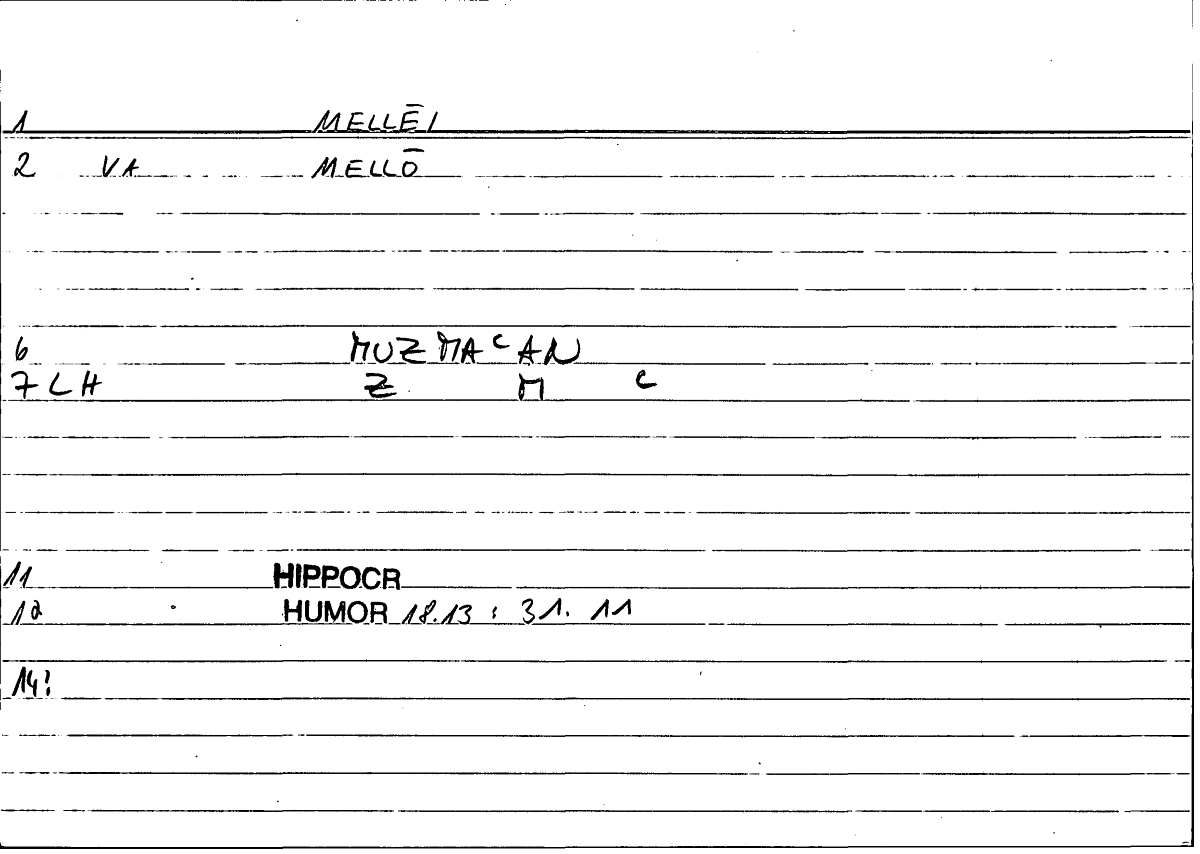 1 MELLĒI
2 VA MELLŌ
6 MUZMAᶜAN
7 LH Z M c
11 HIPPOCR
12 HUMOR 18.13 : 31. 11
14?